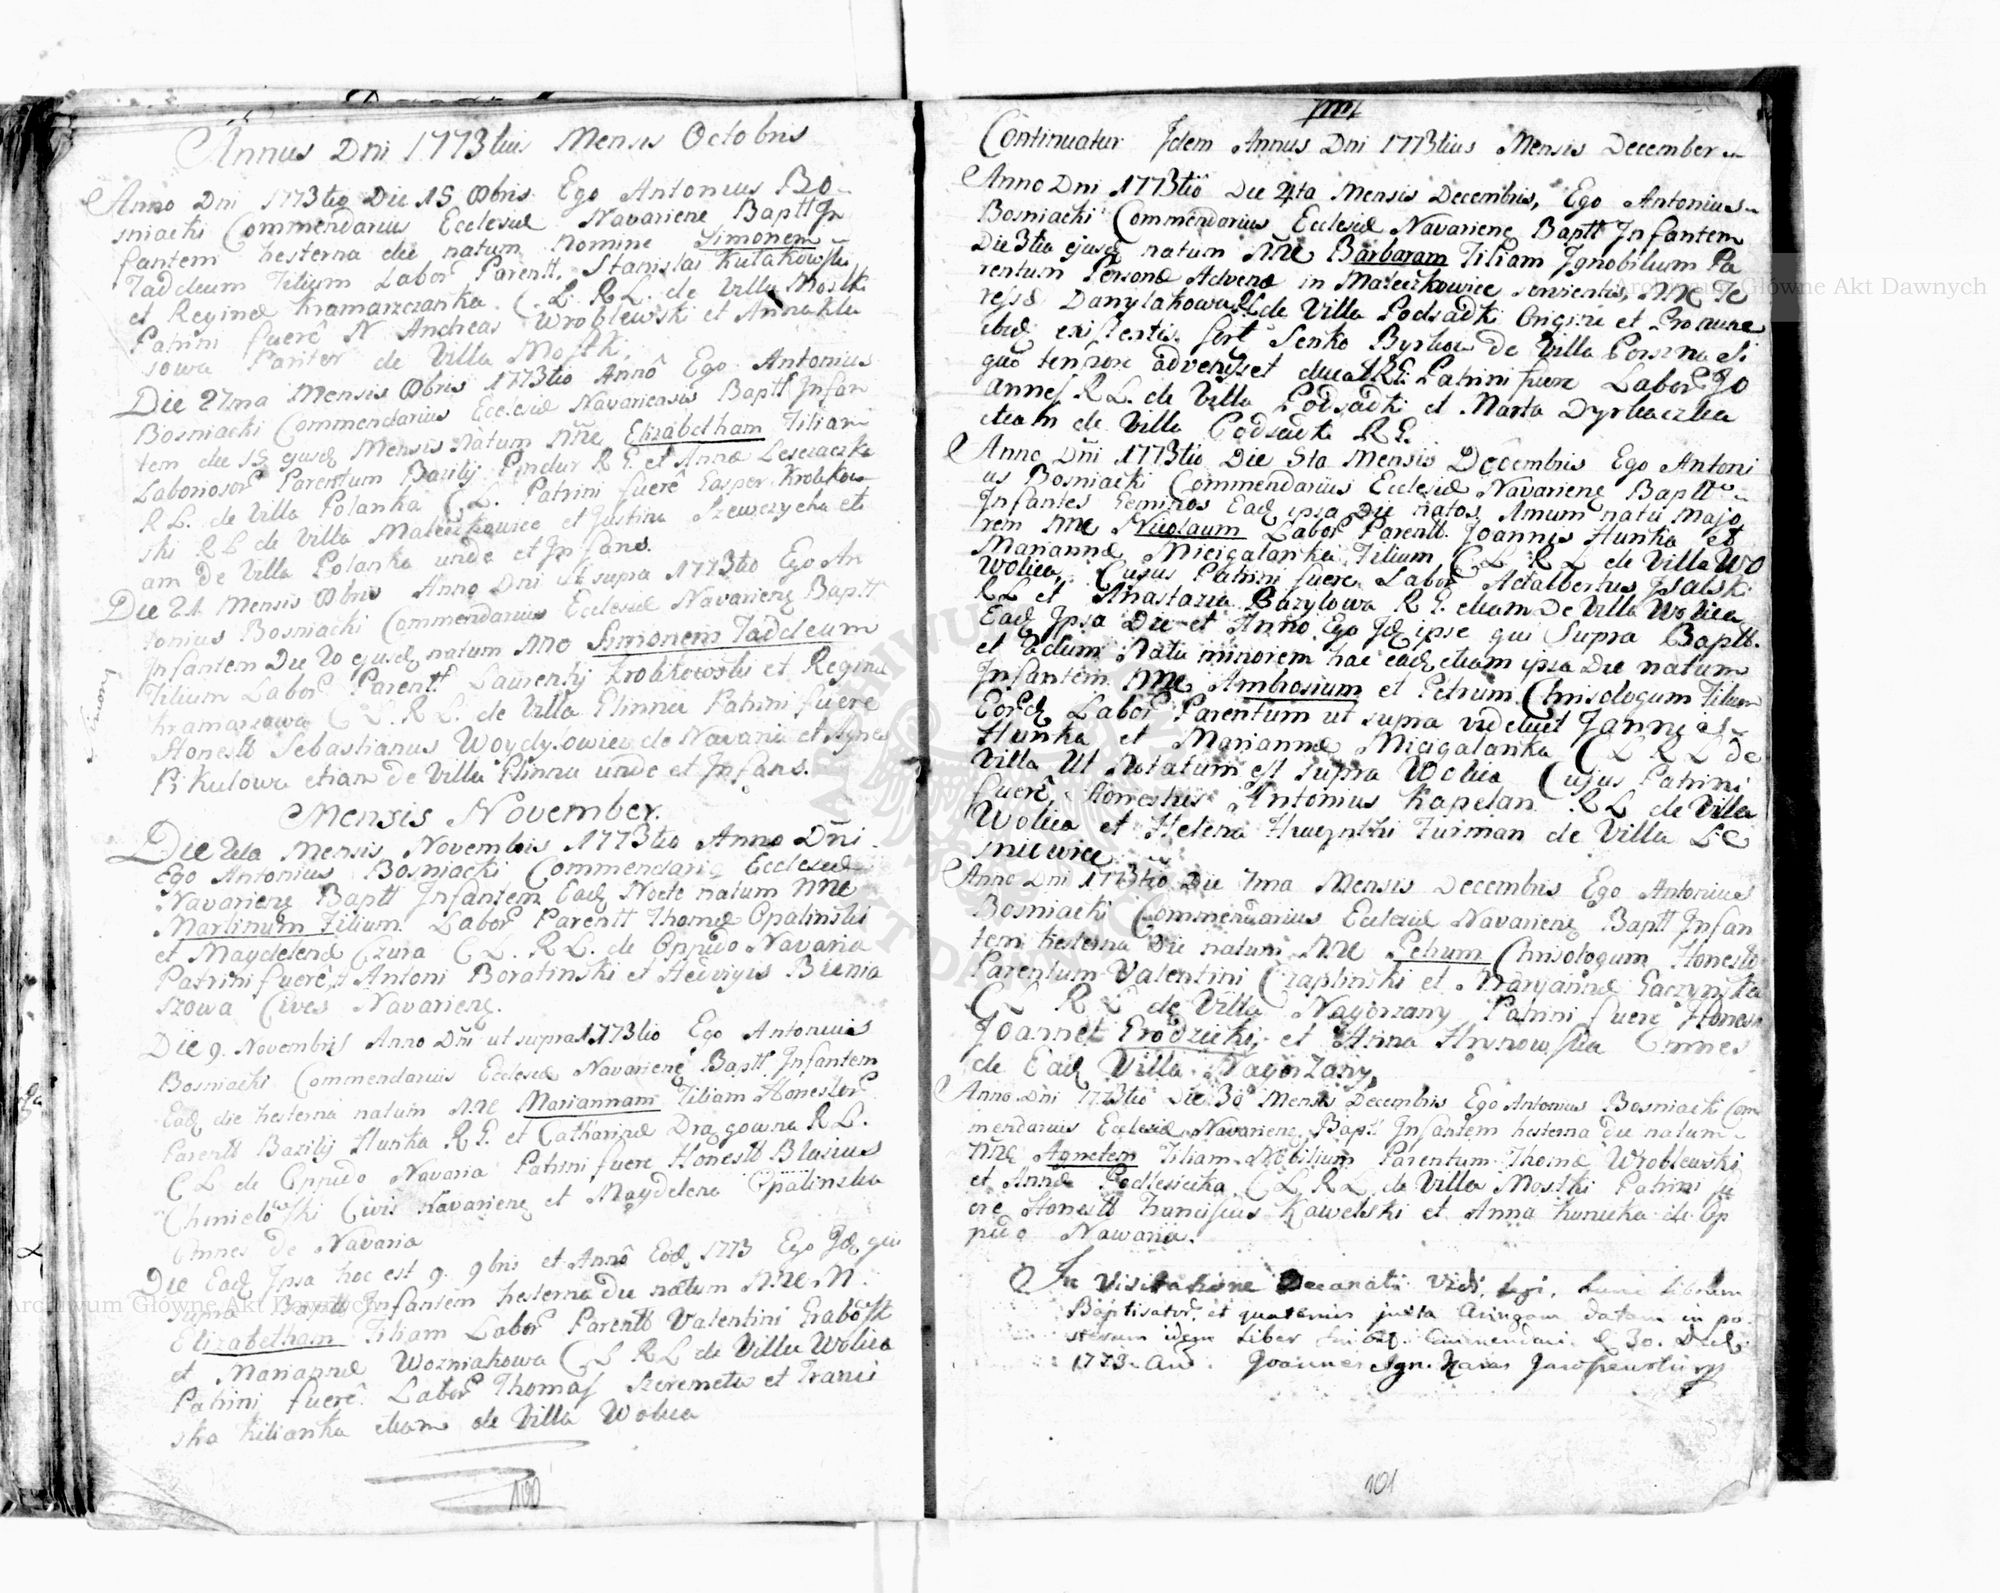 Annus Dni 1773tius Mensis Octobris
Anno Dni 1773tio Die 15 8bris Ego Antonius Bo-
sniacki Commendarius Ecclesiæ Navarienę Baptt In
fantem hesterna die natum nomine Simonem
Taddeum Filium Labor Parentt, Stanislai Kulakowski
et Reginæ Kramarzczanka C. L. R. L. de Villa Mostk
Patrini fuerê N Andreas Wroblewski et Anna Kla
sowa Pariter de Villa Mostk.
Die 27ma Mensis 8bris 1773tio Annô Ego Antonius
Bosniacki Commendarius Ecclesiæ Navariensis Baptt Infan
tem die 15 ejusdę Mensis natum Nñe Elizabetham Filiam
Laboriosor Parentum Bazilij Pindur R G. et Annæ Leszczaczka
R L. de Villa Polanka C L. Patrini fuerê Gasper Krobkow
ski R L de Villa Maleczkowice et Justina Szewczycha eti
am de Villa Polanka unde et Infans.
Die 21 Mensis 8bris Anno Dni Ut supra 1773tio Ego An
tonius Bosniacki Commendarius Ecclesiæ Navarienę Baptt
Infantem Die 20 ejusdę natum Nñe Simonem Taddeum
Filium Labor Parentt Laurentij Krobkowski et Regina
Kramarzowa C L. R L. de Villa Hlinna Patrini fuere
Honestt Sebastianus Woydylowicz de Navaria et Agnes
Pikulowa etiam de Villa Hlinna unde et Infans.
Simon
Mensis November.
Die 2da Mensis Novembris 1773tio Anno Dñi
Ego Antonius Bosniacki Commendarię Ecclesiæ
Navarienę Baptt Infantem Eadę Nocte natum Nñe
Martinum Filium Labor Parentt Thomæ Opalinski
et Magdelenæ Czura C L. R L. de Oppido Navaria
Patrini fuerê Antoni Boratinski et Hedvigis Bienia
szowa Cives Navarienę.
Die 9. Novembris Anno Dñi ut supra 1773tio Ego Antonius
Bosniacki Commendarius Ecclesiæ Navarienę Baptt Infantem
Eadę die hesterna natum Nñe Mariannam Filiam Honestor
Parentt Bazilij Hunka R G. et Catharinæ Dragowna R L.
C L de Oppido Navaria Patrini fuere Honestt Blasius
Chmielowski Civis Navarienę et Magdelena Opalinska
Omnes de Navaria
Die Eadę Ipsa hoc est 9. 9bris et Annô Eodę 1773 Ego Idę qui
supra Baptt Infantem hesterna die natum Nñe M.
Elizabetham Filiam Labor Parentt Valentini Grabosk
et Mariannæ Wozniakowa C L R L de Villa Wolica
Patrini fuerê Labor Thomas Szeremeta et Franci
ska Kilianka etiam de Villa Wolica
100
Continuatur Idem Annus Dni 1773tius Mensis December
Anno Dni 1773tiô Die 4ta Mensis Decembris, Ego Antonius
Bosniacki Commendarius Ecclesiæ Navarienę Baptt Infantem
Die 3tia ejusdę natum Nñe Barbaram Filiam Ignobilium Pa
rentum Personæ Advenæ in Maleczkowice servientis, Nñe Te
ressæ Danylakowa RL de Villa Podsadki Origine et Pronunc
ibidę existentis. fort Senko Byrkow de Villa Porszna Si
quo tempore advenisset ducat RG. Patrini fuere Labor Jo
annes R L. de Villa Podsadki et Marta Dyrkaczka
etiam de Villa Podsadki R G.
Anno Dñi 1773tio Die 5ta Mensis Decembris Ego Antoni
us Bosniacki Commendarius Ecclesiæ Navarienę Baptt
Infantes Geminos Eadę ipsa Die natos, Unum natu Majo
rem Nñe Nicolaum Labor Parentt Joannis Hunka et
Mariannæ Micigalanka Filium C L R L de Villa Wo
Wolica, Cujus Patrini fuere Labor Adalbertus Psalski
R L et Anastazia Bazylowa R G. etiam De Villa Wolica
Eadę Ipsa Die et Anno Ego Idę ipse qui Supra Baptt.
et 2dum Natu minorem hac eadę etiam ipsa Die natum
Infantem Nñe Ambrosium et Petrum Chrisologum Filium
Eordę Labor Parentum ut supra videlicet Joannes
Hunka et Mariannæ Micigalanka C L R L de
Villa Ut Notatum est supra Wolica Cujus Patrini
fuerê Honestus Antonius Kapelan R L de Villa
Wolica et Helena Furman de Villa Le
sniewice
Anno Dni 1773tio Die 7ma Mensis Decembris Ego Antonius
Bosniacki Commendarius Ecclesiæ Navarienę Baptt Infan
tem hesterna Die natum Nñe Petrum Chrisologum Honestt
Parentum Valentini Czaplinski et Maryannæ Gaczynska
C L R L de Villa Nagorzany Patrini fuere Honest
Joannes Grodzicki, et Anna Hrynowska Omnes
de Eadę Villa Nagorzany,
Anno Dñi 1773tio Die 30 Mensis Decembris Ego Antonius Bosniacki Com
mendarius Ecclesiæ Navarienę Baptt Infantem hesterna die natum
Nñe Agnetem Filiam Nobilium Parentum Thomæ Wroblewski
et Annæ Podlesiecka C L R L de Villa Mostki Patrini fu
ere Honestt Franciscus Kawelski et Anna Kunicka de Op
pido Nawaria.
In Visitatione Decanali Vidi, legi, hunc librum
Baptisator et quatenus juxta datam in po
sterum idem Liber 30. Decbr
1773 An. Joannes
101
Archiwum Główne Akt Dawnych
Archiwum Główne Akt Dawnych